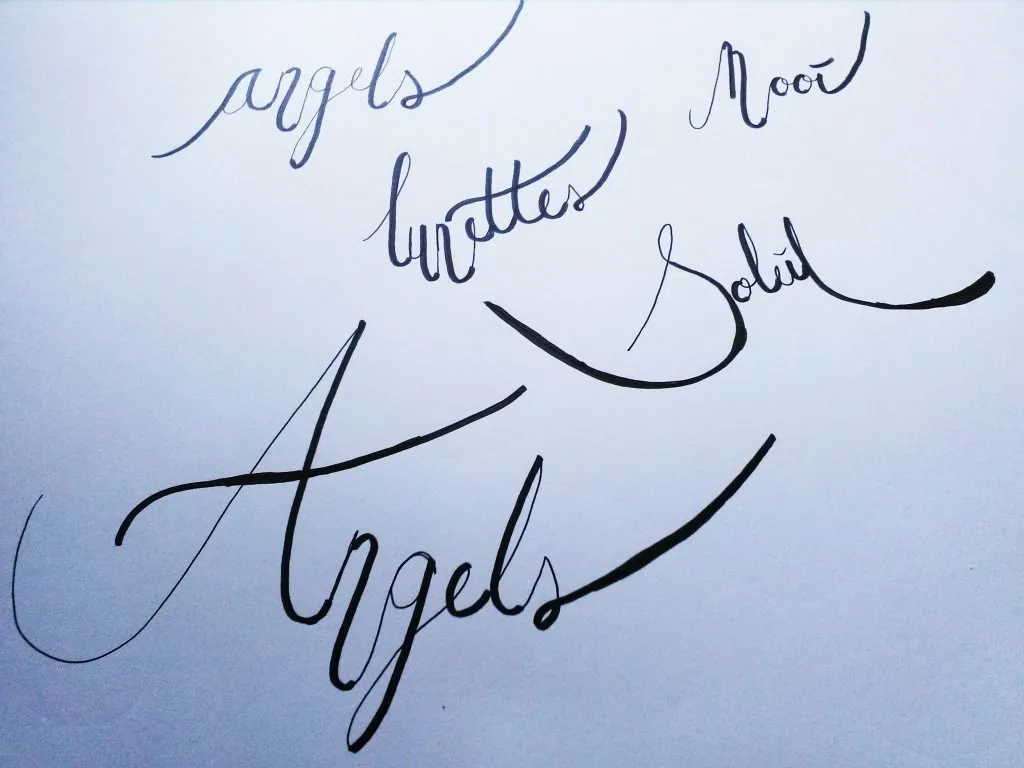 angels
Mooi
lunettes
Soleil
Angels